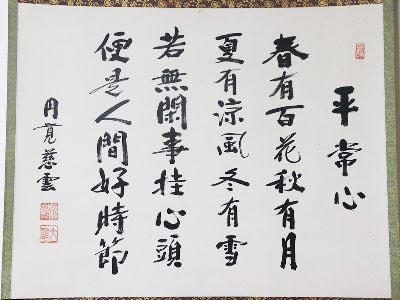 平常心
春有百花秋有月
夏有涼風冬有雪
若無閑事挂心頭
便是人間好時節
円覚慈雲